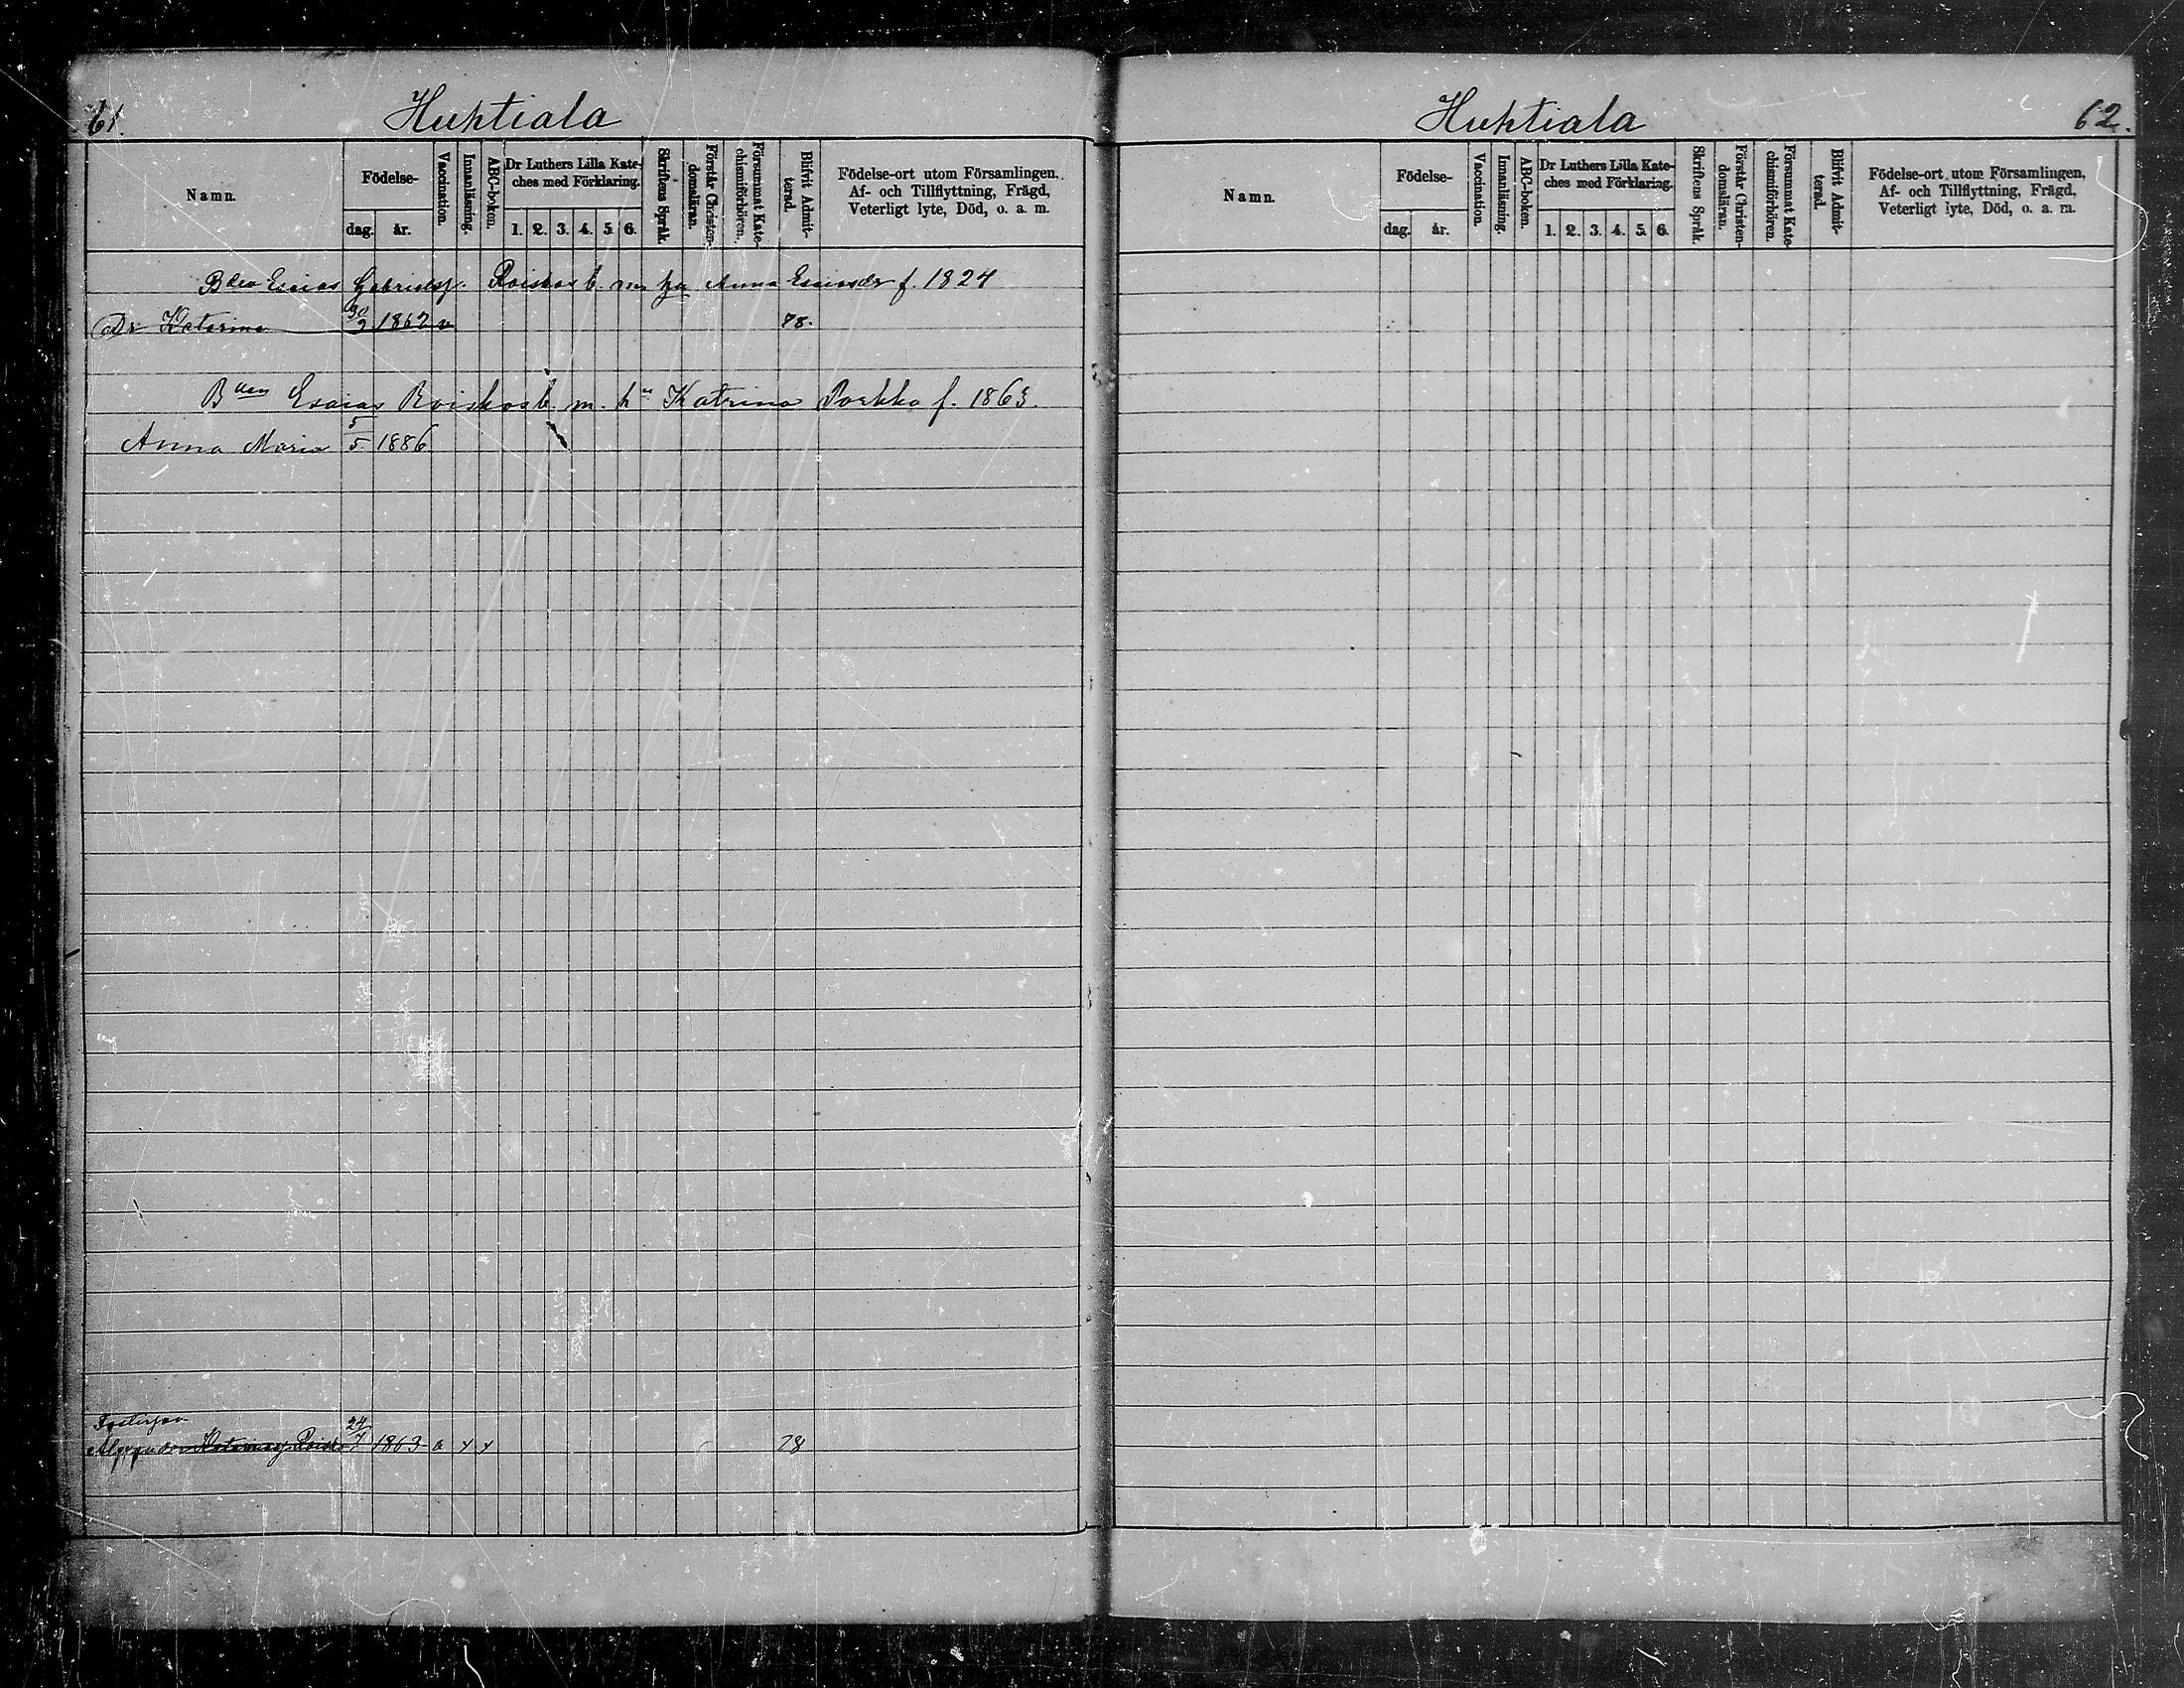 61.
Huhtiala
Namn.
Födelse-
dag.
år.
Vaccination.
Innanläsning.
ABC-boken.
Dr Luthers Lilla Kate-
ches med Förklaring.
1. 2. 3. 4. 5. 6.
Skriftens Språk.
Förstår Christen-
domsläran.
Försummat Kate-
chismiförhören.
Blifvit Admit-
terad.
Födelse-ort utom Församlingen,
Af- och Tillflyttning, Frägd,
Veterligt lyte, Död, o. a. m.
Esaias Gabrielss. b. m. Anna Esaiasdr f. 1824
Dr Katarina 30/9 1862 v 78.
Esaias b. m. h Katrina Porkka f. 1863.
Anna Maria 5/5 1886
Fosterson
24/7 1863 a x x 78
Huhtiala
62.
Namn.
Födelse-
dag.
år.
Vaccination.
Innanläsning.
ABC-boken.
Dr Luthers Lilla Kate-
ches med Förklaring.
1. 2. 3. 4. 5. 6.
Skriftens Språk.
Förstår Christen-
domsläran.
Försummat Kate-
chismiförhören.
Blifvit Admit-
terad.
Födelse-ort utom Församlingen,
Af- och Tillflyttning, Frägd,
Veterligt lyte, Död, o. a. m.